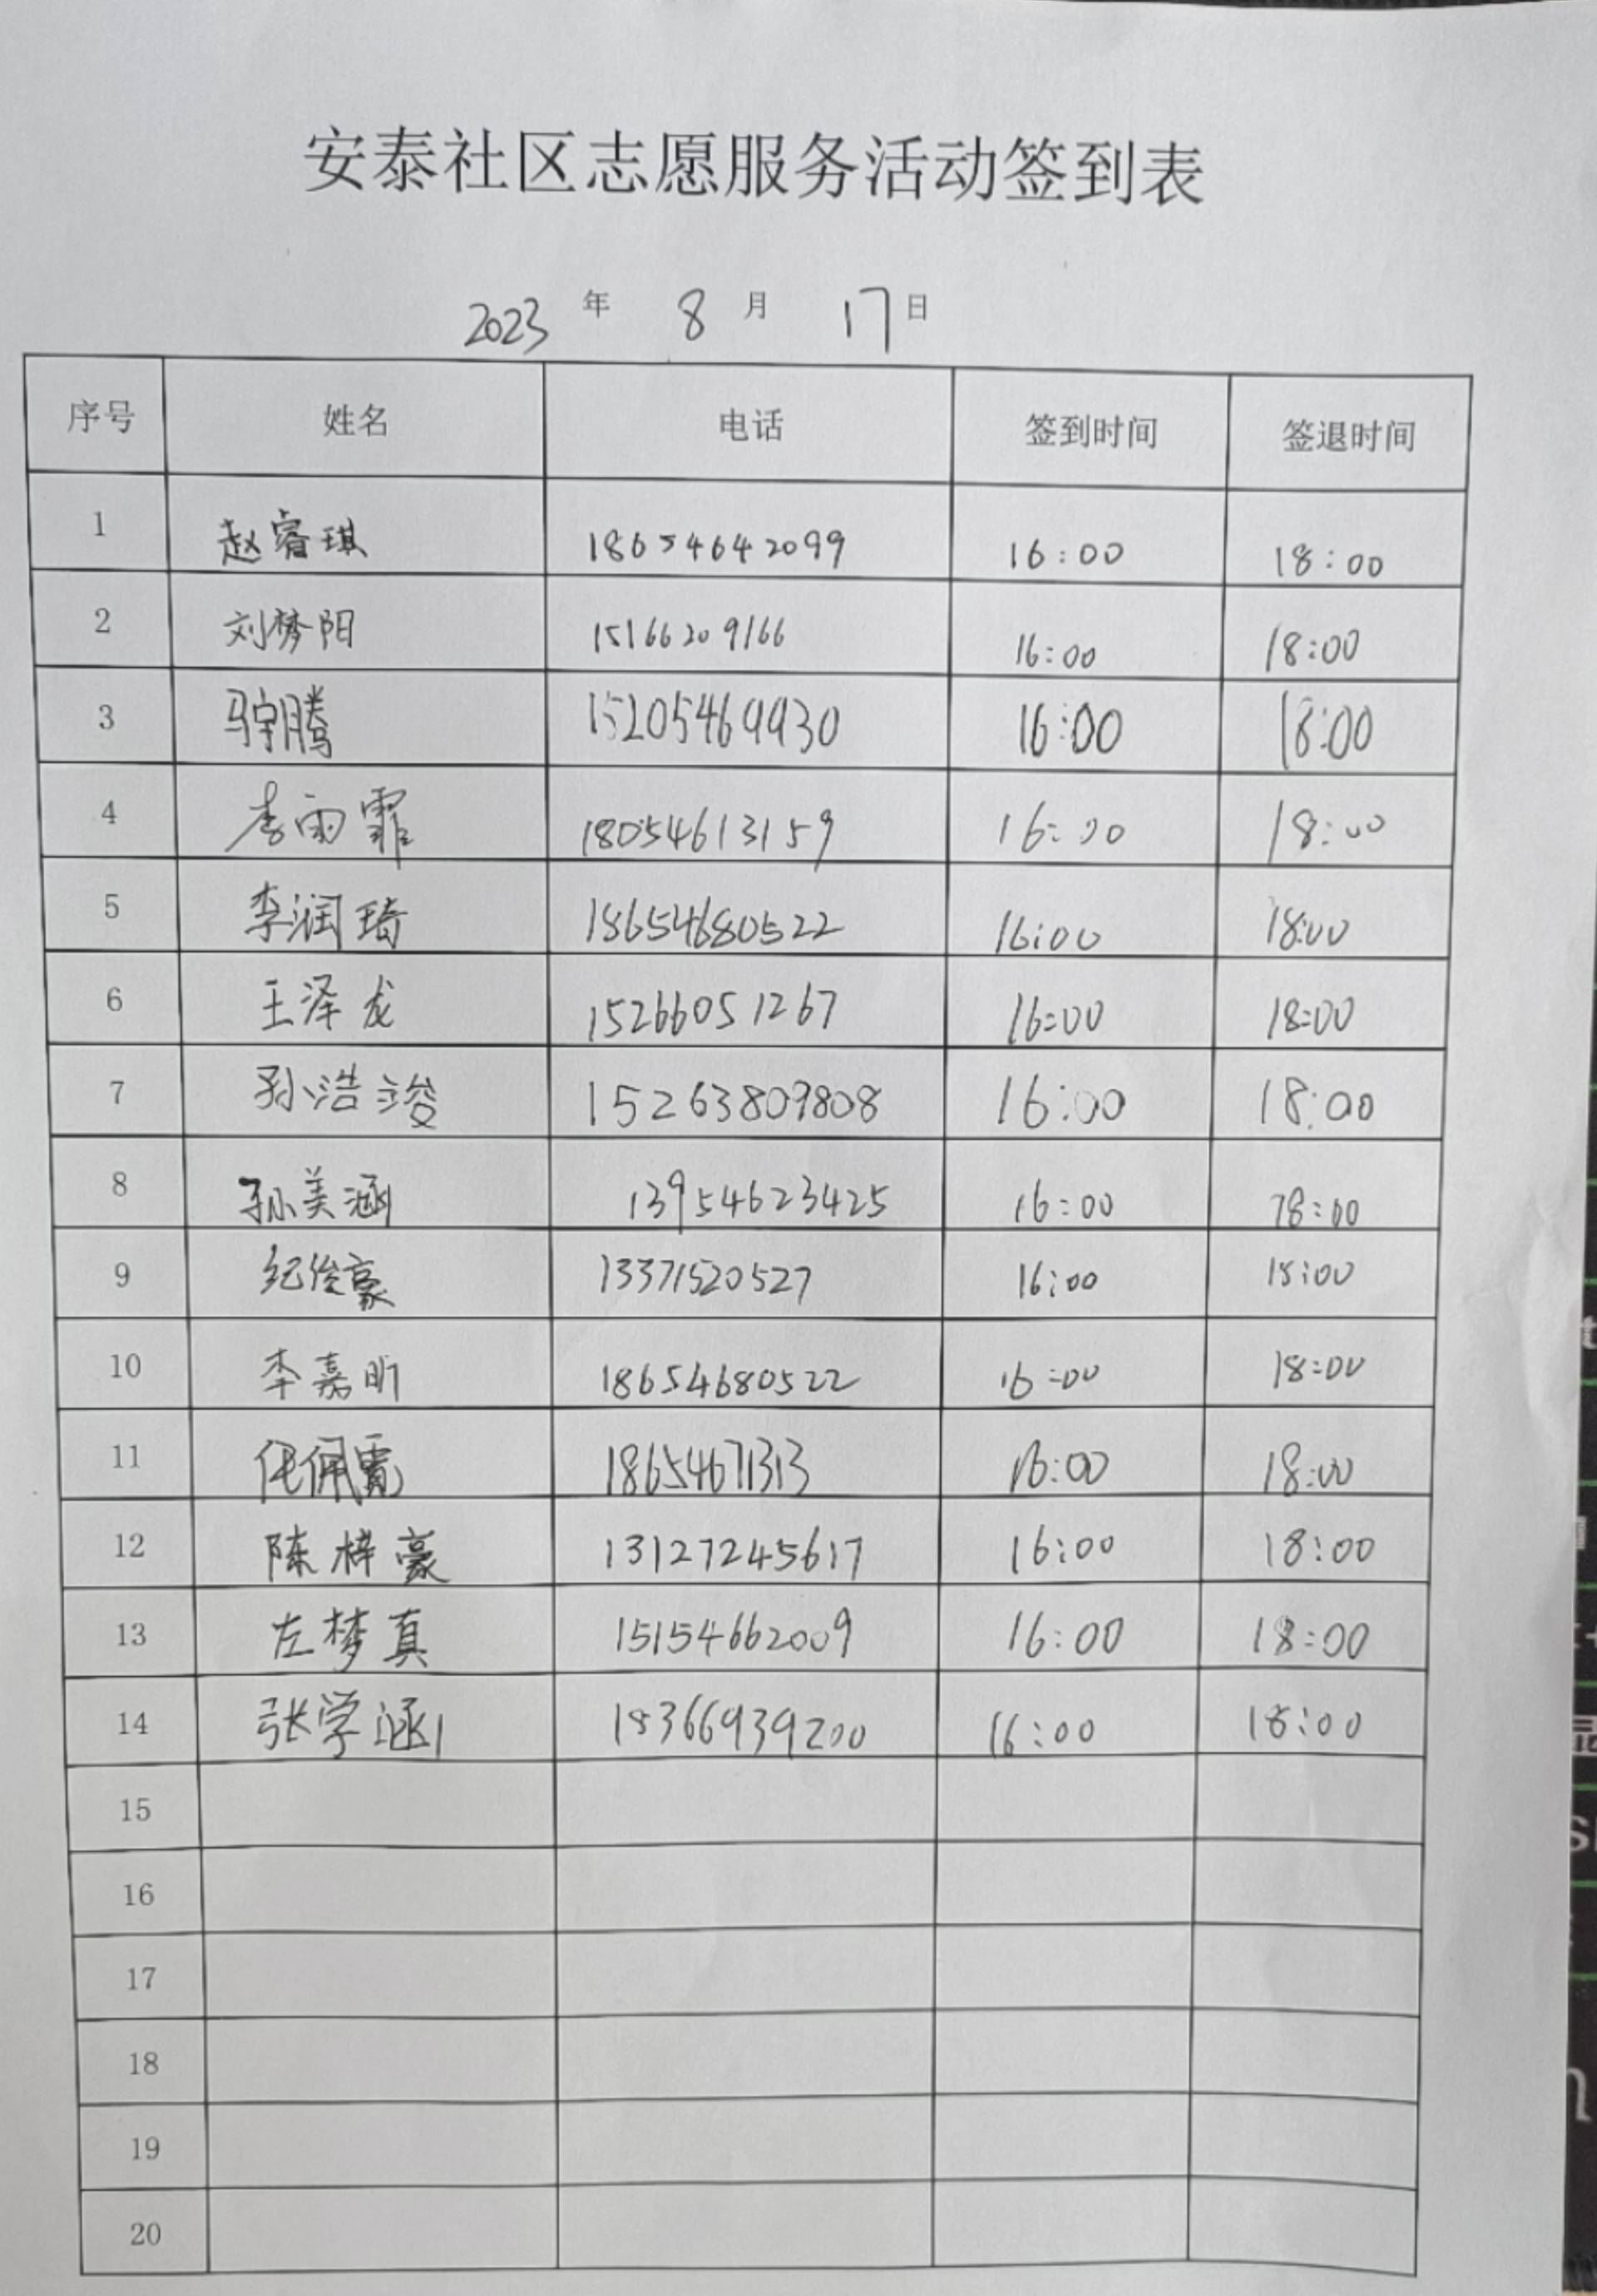 安泰社区志愿服务活动签到表
2023 年 8 月 17 日
序号 姓名 电话 签到时间 签退时间
1 赵睿琪 18654642099 16:00 18:00
2 刘梦阳 15166209166 16:00 18:00
3 马宇腾 15205469930 16:00 18:00
4 李雨霏 18054613159 16:00 18:00
5 李润琦 18654680522 16:00 18:00
6 王泽龙 15266051267 16:00 18:00
7 孙浩竣 15263809808 16:00 18:00
8 孙美涵 13954623425 16:00 18:00
9 纪俊豪 13371520527 16:00 18:00
10 李嘉昕 18654680522 16:00 18:00
11 18654671313 16:00 18:00
12 陈梓豪 13127245617 16:00 18:00
13 左梦真 15154662009 16:00 18:00
14 张学涵 18366939200 16:00 18:00
15
16
17
18
19
20